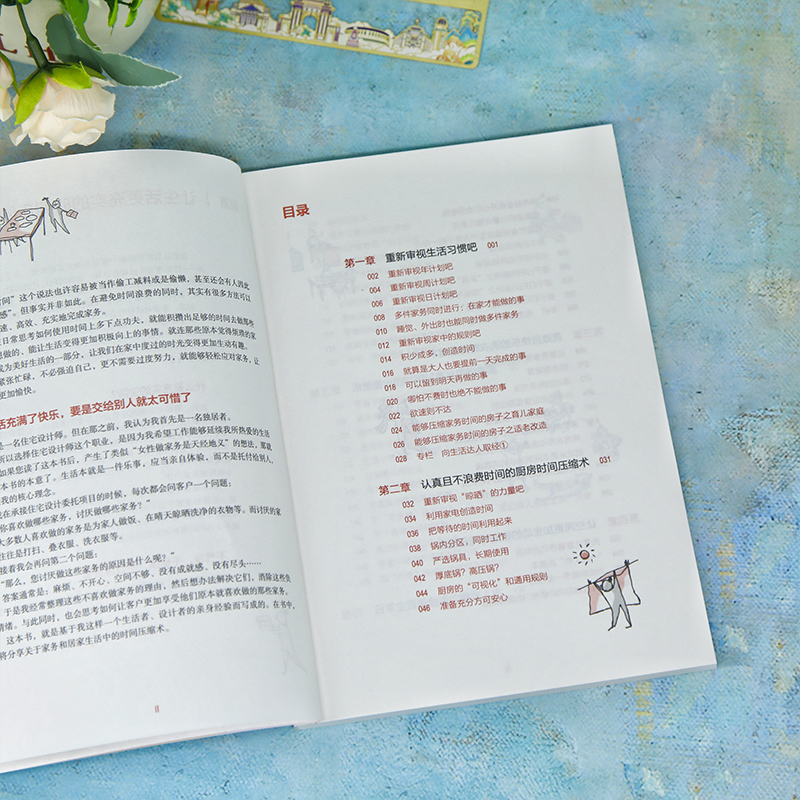 时间”这个说法也许容易被当作偷工减料或是偷懒，甚至还会有人因此
感”。但事实并非如此。在避免时间浪费的同时，其实有很多方法可以
速、高效、充实地完成家务。
日常思考如何使用时间上多下点功夫，就能积攒出足够的时间去做那些
想做的，能让生活变得更加积极向上的事情。就连那些原本觉得烦躁的家
成为美好生活的一部分，让我们在家中度过的时光变得更加生动有趣。
紧张忙碌，不必强迫自己，更不需要过度努力，就能够轻松应对家务，让
更加愉快。
活充满了快乐，要是交给别人就太可惜了
是一名住宅设计师。但在那之前，我认为我首先是一名独居者。
所以选择住宅设计师这个职业，是因为我希望工作能够延续我所热爱的生活
如果您读了这本书后，产生了类似“女性做家务是天经地义”的想法，那就
本书的本意了。生活本就是一件乐事，应当亲自体验，而不是托付给别人，
我的核心理念。
在承接住宅设计委托项目的时候，每次都会问客户一个问题：
你喜欢做哪些家务，讨厌做哪些家务？”
大多数人喜欢做的家务是为家人做饭、在晴天晾晒洗净的衣物等。而讨厌的家
往往是打扫、叠衣服、洗衣服等。
接着我会再问第二个问题：
“那么，您讨厌做这些家务的原因是什么呢？”
答案通常是：麻烦、不开心、空间不够、没有成就感、没有尽头……
于是我经常整理这些不喜欢做家务的理由，然后想办法解决它们，消除这些负
情绪。与此同时，也会思考如何让客户更加享受他们原本就喜欢做的那些家务。
这本书，就是基于我这样一个生活者、设计者的亲身经验而写成的。在书中，
将分享关于家务和居家生活中的时间压缩术。
II
目录
第一章 重新审视生活习惯吧 001
002 重新审视年计划吧
004 重新审视周计划吧
006 重新审视日计划吧
008 多件家务同时进行；在家才能做的事
010 睡觉、外出时也能同时做多件家务
012 重新审视家中的规则吧
014 积少成多，创造时间
016 就算是大人也要提前一天完成的事
018 可以留到明天再做的事
020 哪怕不费时也绝不能做的事
022 欲速则不达
024 能够压缩家务时间的房子之育儿家庭
026 能够压缩家务时间的房子之适老改造
028 专栏 向生活达人取经①
第二章 认真且不浪费时间的厨房时间压缩术 031
032 重新审视“晾晒”的力量吧
034 利用家电创造时间
036 把等待的时间利用起来
038 锅内分区，同时工作
040 严选锅具，长期使用
042 厚底锅？高压锅？
044 厨房的“可视化”和通用规则
046 准备充分方可安心